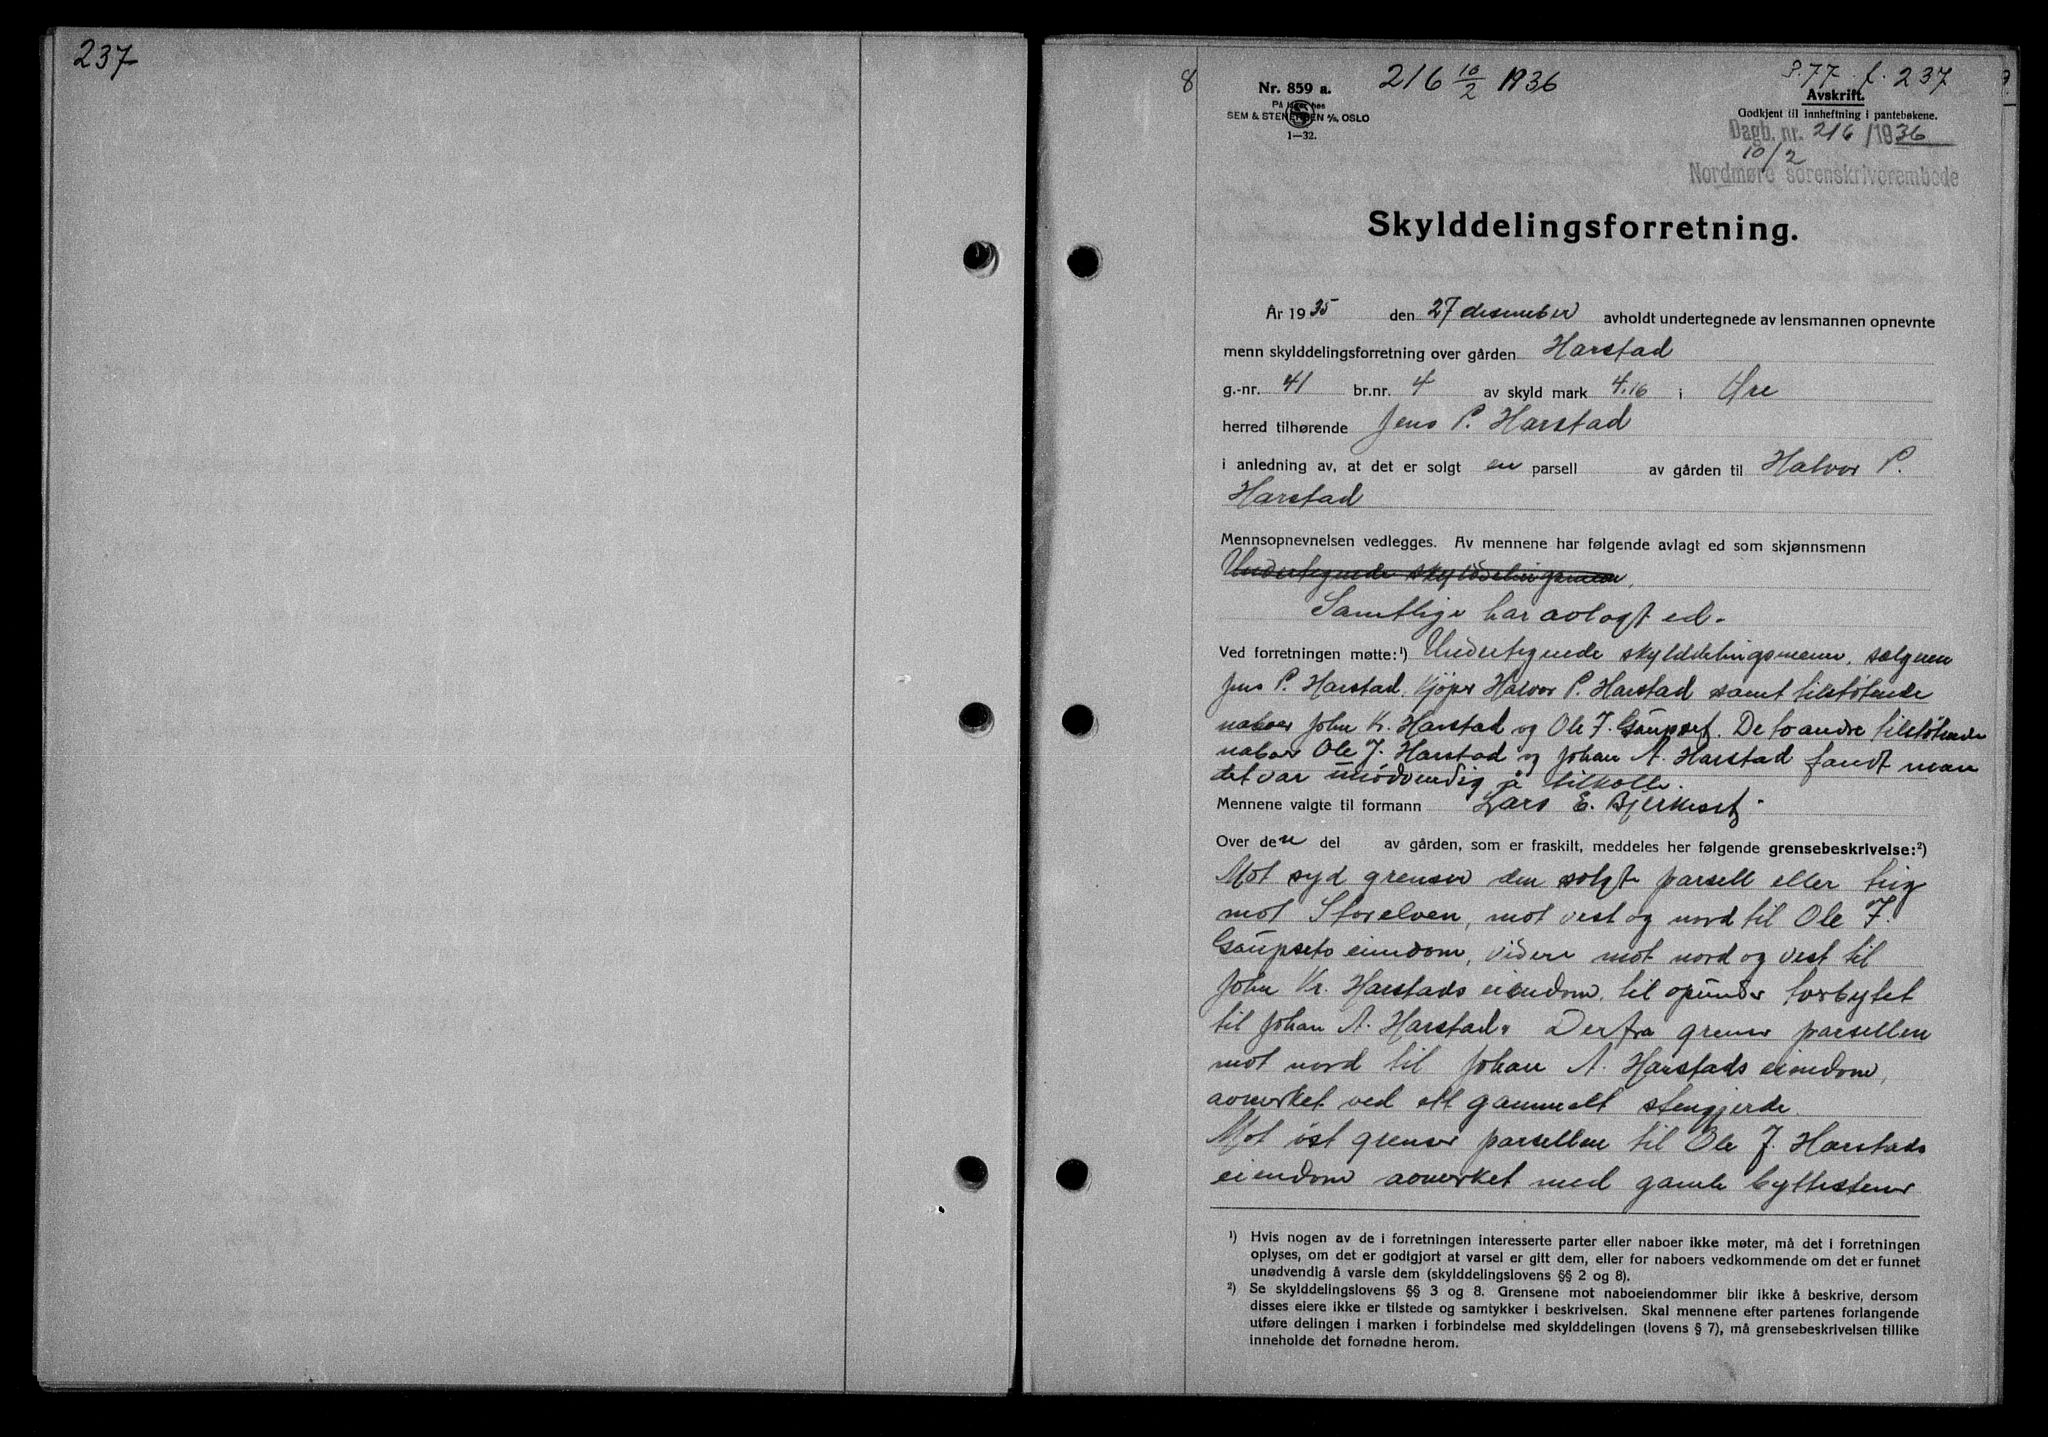 237
8
Nr. 859 a.
På lager hos
SEM & STENERSEN A/S, OSLO
1—32.
216 10/2 1936
P. 77 f. 237
Avskrift.
Godkjent til innheftning i pantebøkene.
Dagb. nr. 216/1936
10/2
Nordmøre sorenskriverembede
Skylddelingsforretning.
År 1935 den 27 desember avholdt undertegnede av lensmannen opnevnte
menn skylddelingsforretning over gården Harstad
g.-nr. 41 br.nr. 4 av skyld mark 4.16 i Øre
herred tilhørende Jens P. Harstad
i anledning av, at det er solgt en parsell av gården til Halvor P.
Harstad
Mennsopnevnelsen vedlegges. Av mennene har følgende avlagt ed som skjønnsmenn
Undertegnede skylddelingsmenn,
Samtlige har avlagt ed.
Ved forretningen møtte:¹) Undertegnede skylddelingsmenn, sælgeren
Jens P. Harstad, Kjøper Halvor P. Harstad samt tilstøtende
naboer John K. Harstad og Ole J. Gaupset. De to andre tilstøtende
naboer Ole J. Harstad og Johan A. Harstad fandt man
det var unødvendig å tilkalle.
Mennene valgte til formann Lars E. Bjerkeset.
Over den del av gården, som er fraskilt, meddeles her følgende grensebeskrivelse:²)
Mot syd grenser den solgte parsell eller teig
mot Storelven, mot vest og nord til Ole J.
Gaupsets eiendom, videre mot nord og vest til
John Kr. Harstads eiendom, til opunder torbytet
til Johan A. Harstad. Derfra grenser parsellen
mot nord til Johan A. Harstads eiendom,
avmerket ved ett gammelt stengjerde.
Mot øst grenser parsellen til Ole J. Harstads
eiendom avmerket med gamle byttestener
¹) Hvis nogen av de i forretningen interesserte parter eller naboer ikke møter, må det i forretningen
oplyses, om det er godtgjort at varsel er gitt dem, eller for naboers vedkommende om det er funnet
unødvendig å varsle dem (skylddelingslovens §§ 2 og 8).
²) Se skylddelingslovens §§ 3 og 8. Grensene mot naboeiendommer blir ikke å beskrive, dersom
disses eiere ikke er tilstede og samtykker i beskrivelsen. Skal mennene efter partenes forlangende
utføre delingen i marken i forbindelse med skylddelingen (lovens § 7), må grensebeskrivelsen tillike
inneholde det fornødne herom.